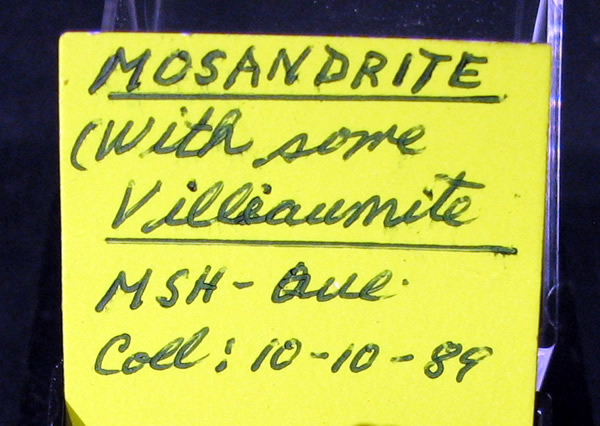 MOSANDRITE
(With some
Villieaumite
MSH - Que.
Coll: 10-10-89